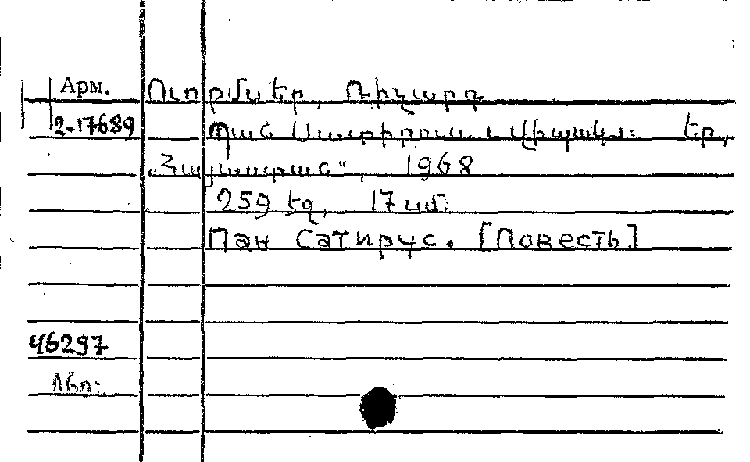 Арм. Ուորմսեր, Ռիչարդ
2-17689 Պան Սատիրուս. [Վիպակ]: Եր.,
„Հայաստան“, 1968
259 էջ, 17 սմ.
Пан Сатирус. [Повесть]
46297